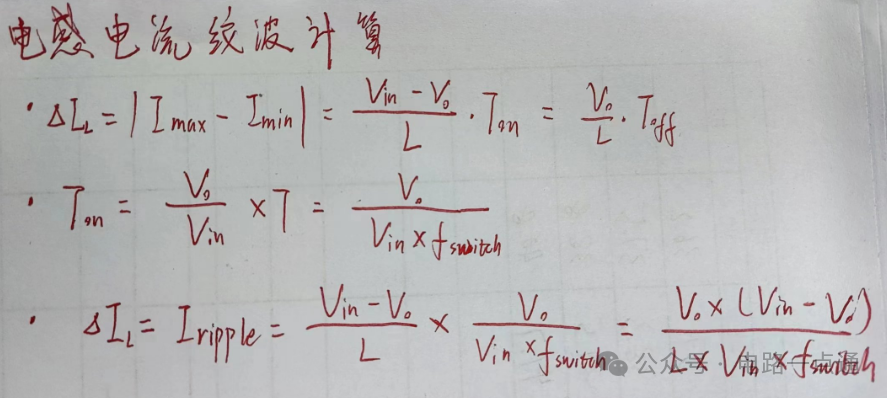 电感电流纹波计算
· ΔI_L = |I_max - I_min| = (V_in - V_o)/L · T_on = V_o/L · T_off
· T_on = V_o/V_in × T = V_o/(V_in × f_switch)
· ΔI_L = I_ripple = (V_in - V_o)/L × V_o/(V_in × f_switch) = (V_o × (V_in - V_o))/(L × V_in × f_switch)
公众号 · 电路一点通